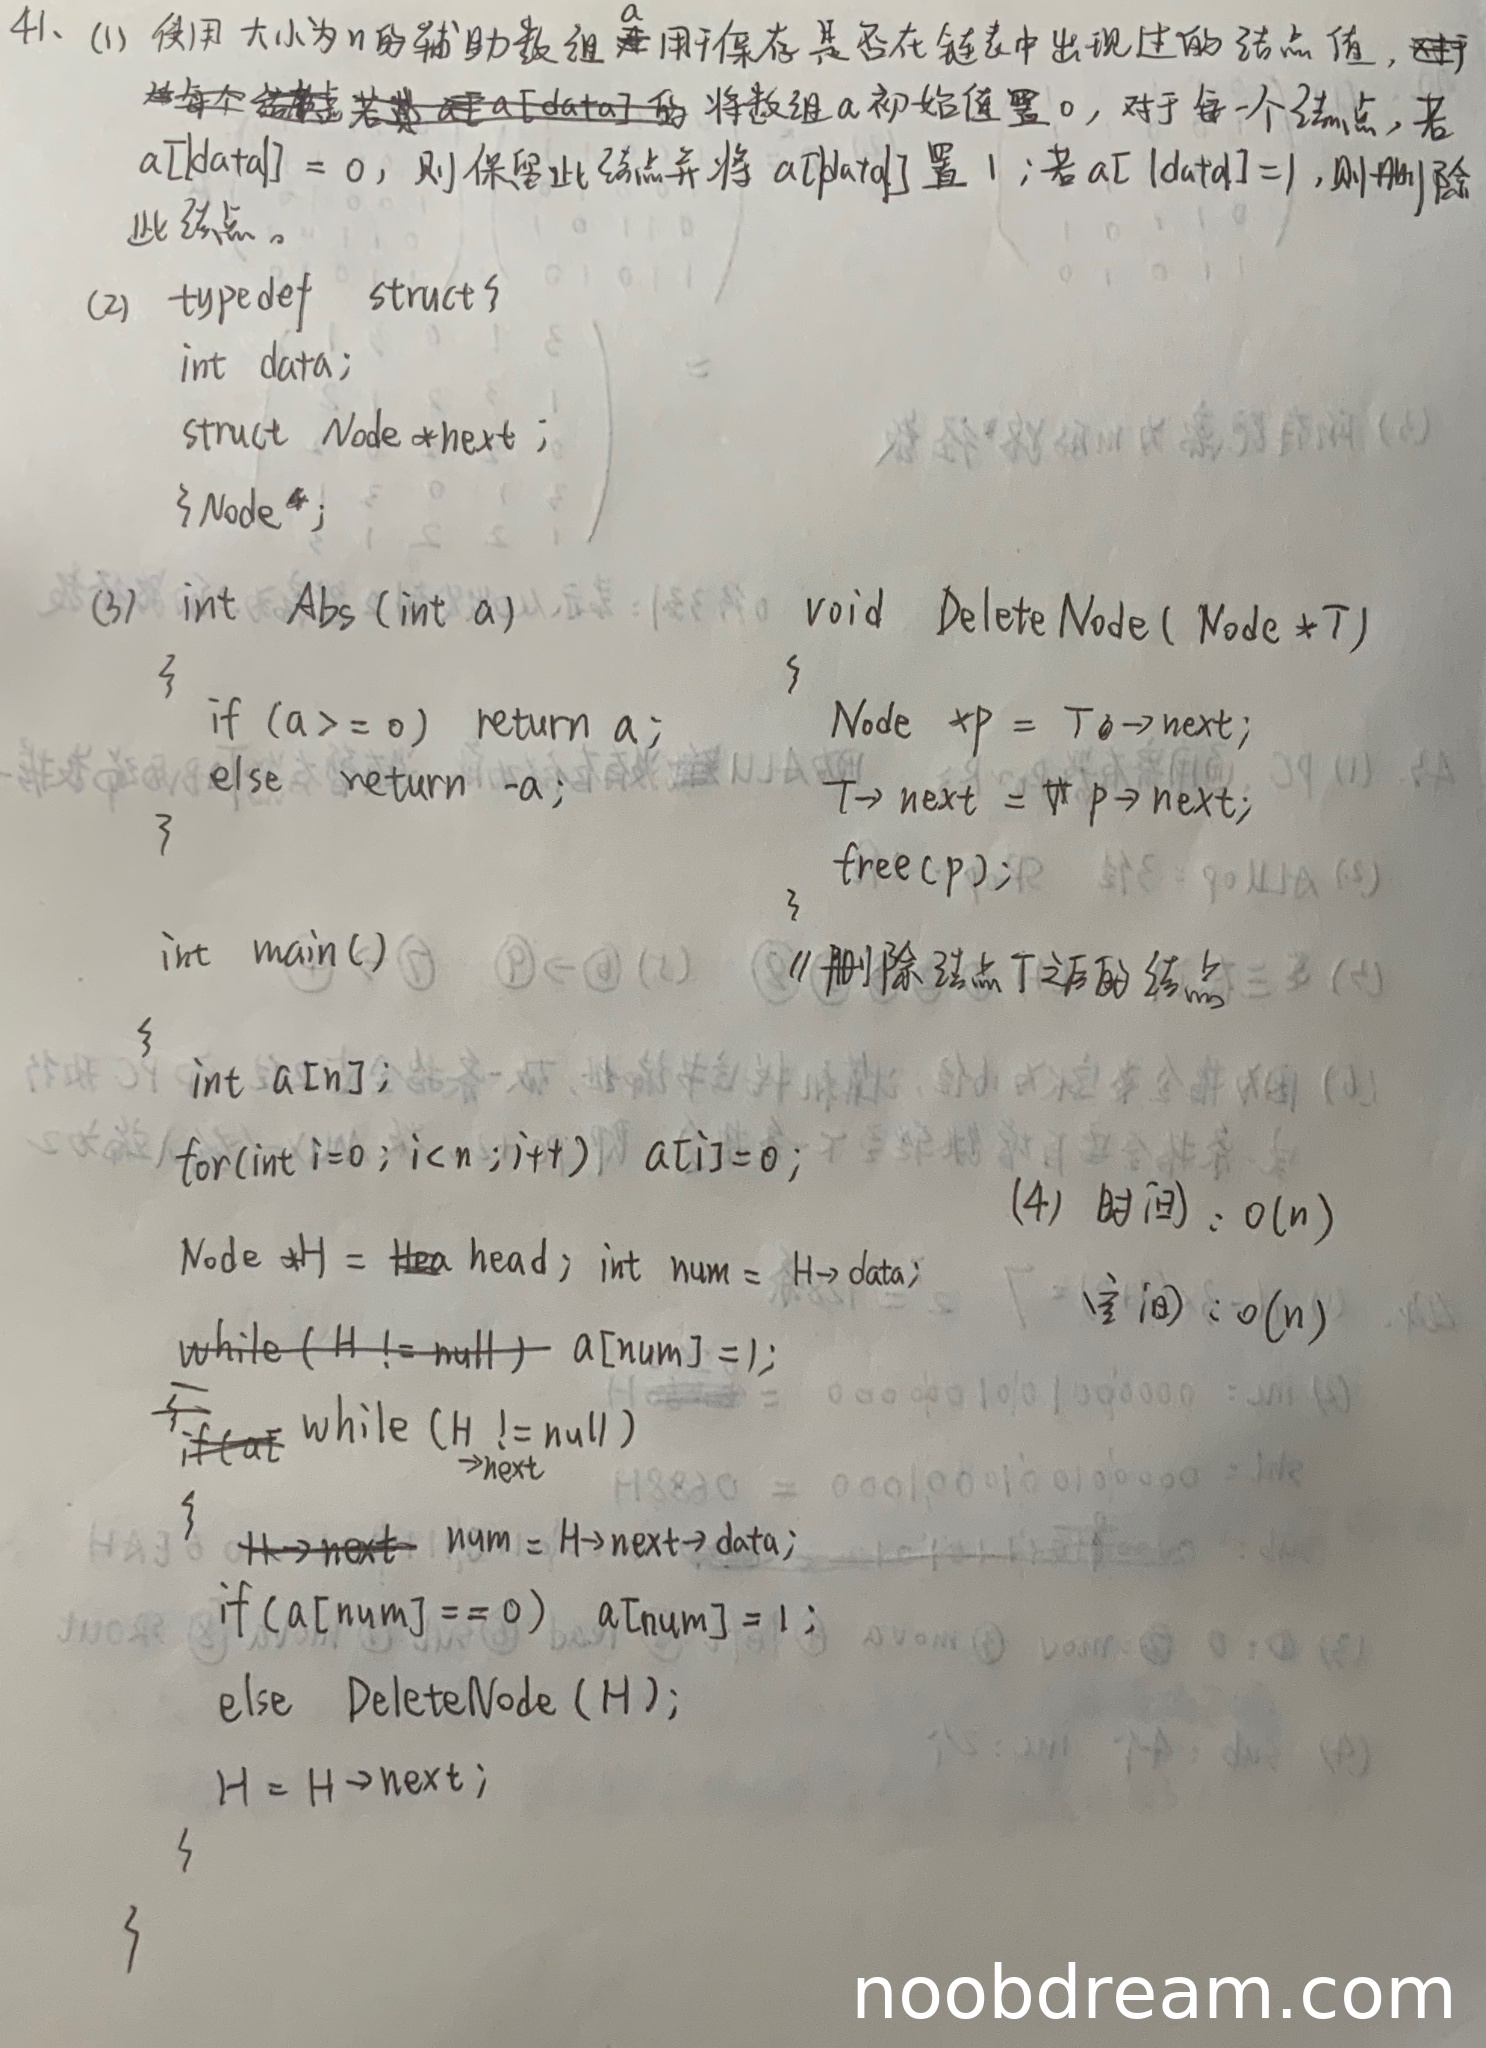 41、(1) 使用大小为n的辅助数组a用于保存是否在链表中出现过的结点值，
将数组a初始值置0，对于每一个结点，若
a[|data|] = 0，则保留此结点并将 a[|data|] 置 1；若a[|data|]=1，则删除
此结点。
(2) typedef struct{
int data;
struct Node *next;
}Node*;
(3) int Abs(int a)
{
if (a>=0) return a;
else return -a;
}
void DeleteNode( Node *T)
{
Node *p = T→next;
T→next = p→next;
free(p);
}
//删除结点T之后的结点
int main()
{
int a[n];
for(int i=0; i<n; i++) a[i]=0;
Node *H = head; int num = H→data;
a[num]=1;
while (H→next != null)
{
num = H→next→data;
if (a[num]==0) a[num]=1;
else DeleteNode(H);
H = H→next;
}
}
(4) 时间：O(n)
空间：O(n)
noobdream.com